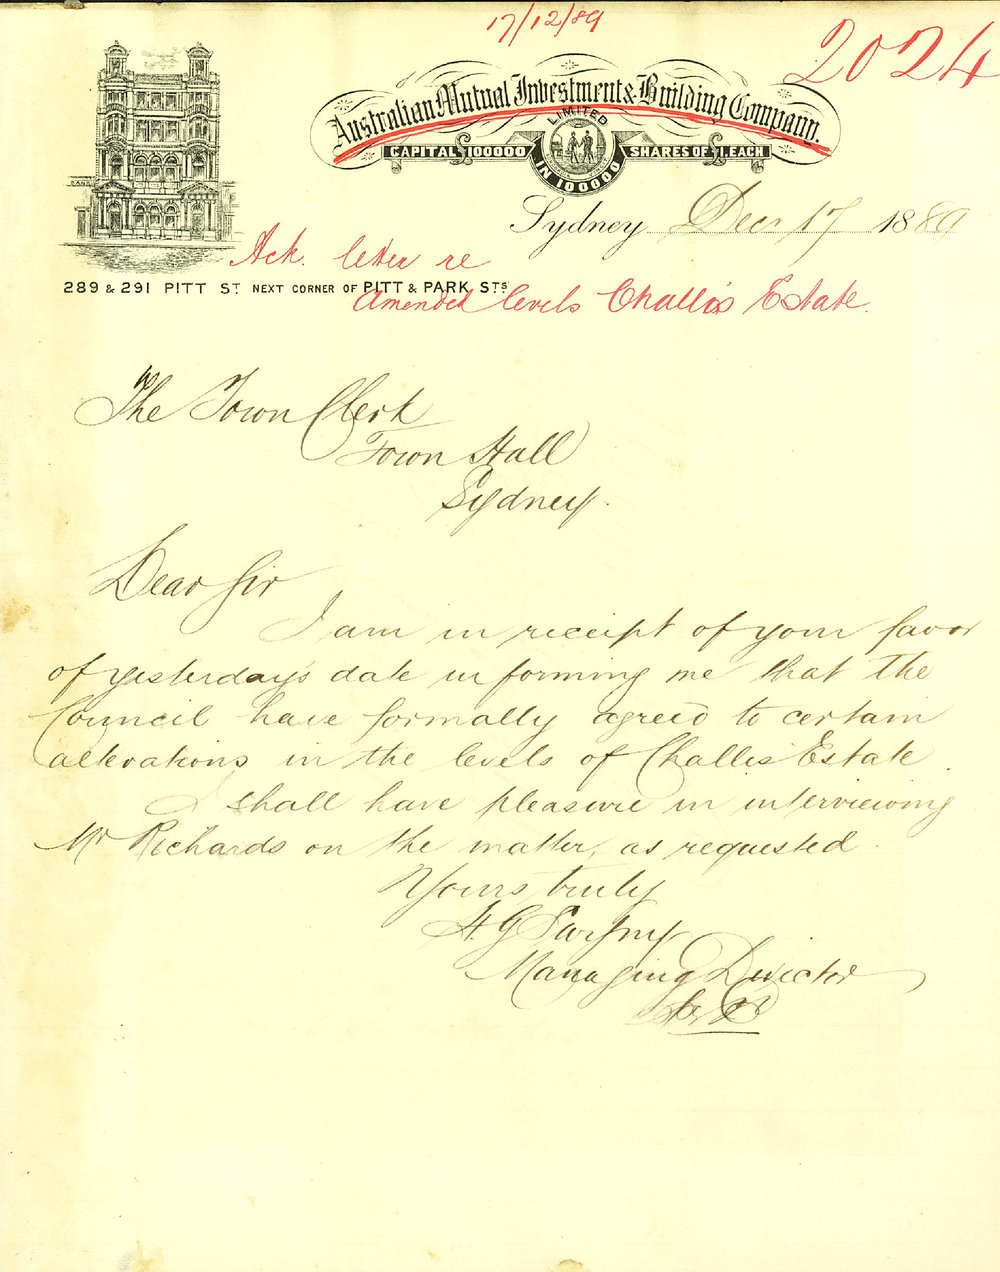 17/12/89
2024
Australian Mutual Investment & Building Company.
LIMITED
CAPITAL £100000 IN 100000 SHARES OF £1. EACH
Sydney Dec 17 1889
Ack. letter re
289 & 291 PITT ST NEXT CORNER OF PITT & PARK STS
Amended levels Challis Estate.
The Town Clerk
Town Hall
Sydney.
Dear Sir
I am in receipt of your favor
of yesterday's date informing me that the
Council have formally agreed to certain
alterations in the levels of Challis Estate.
I shall have pleasure in interviewing
Mr Richards on the matter, as requested.
Yours truly
H. G.
Managing Director